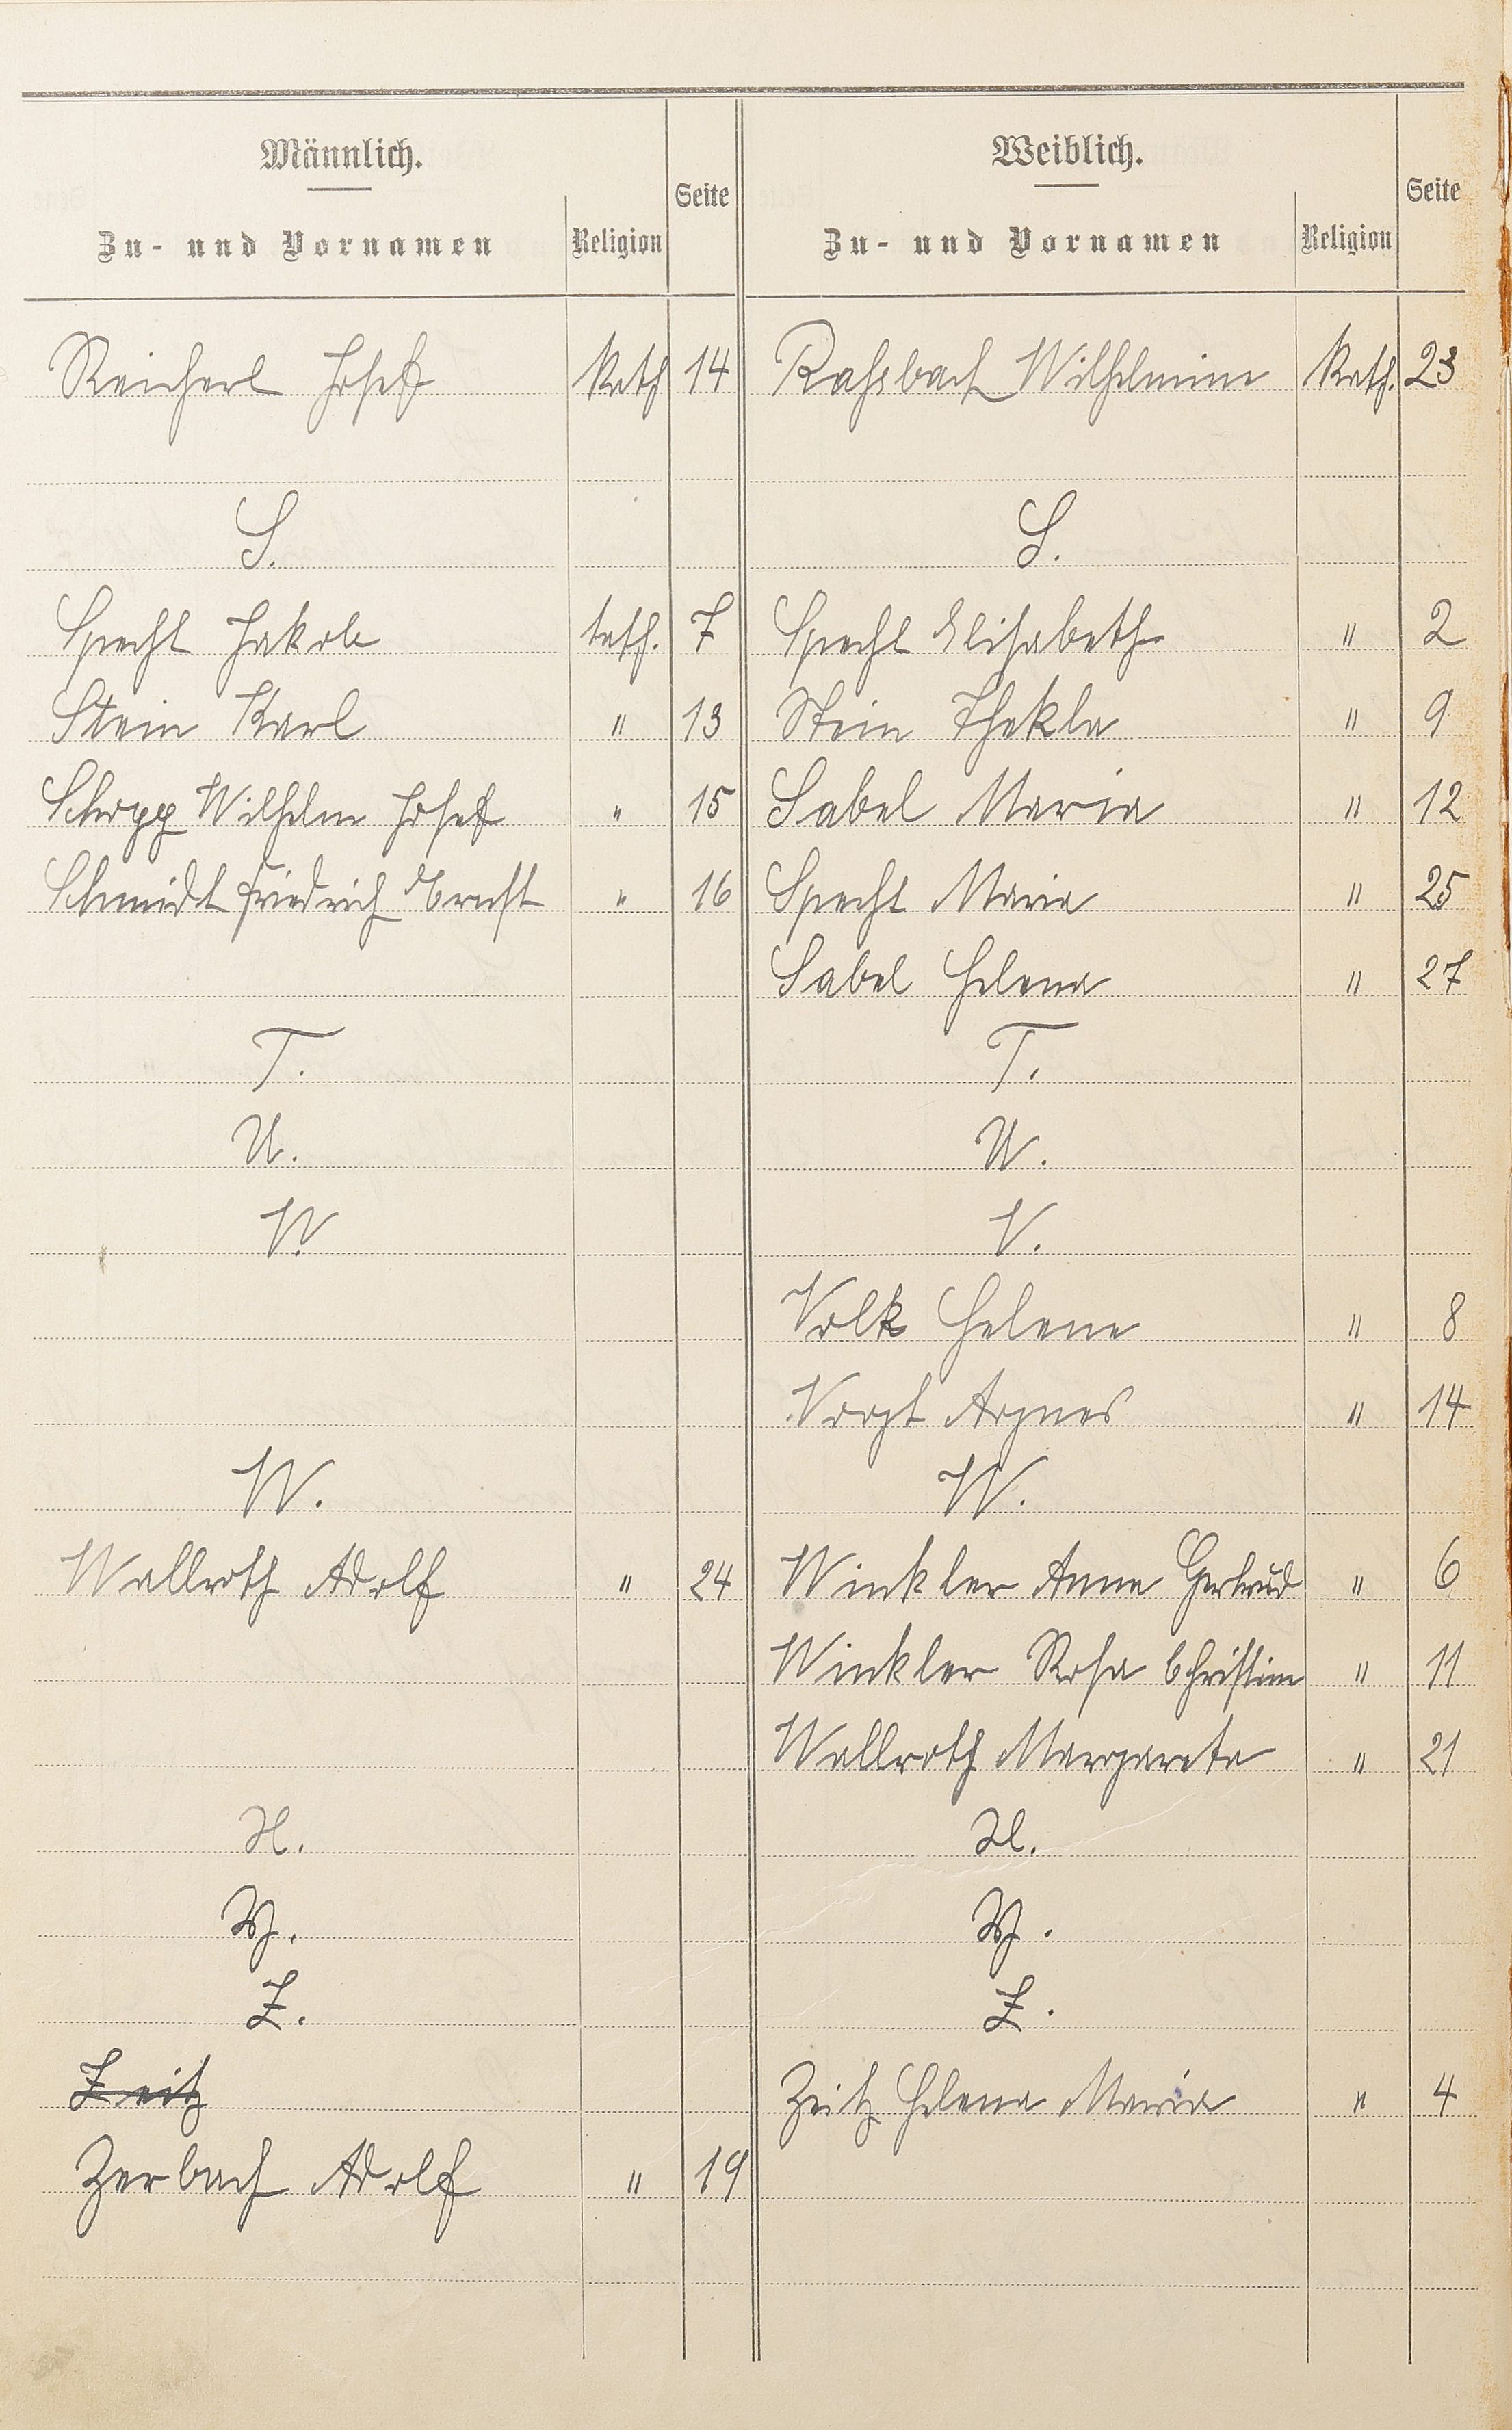 Männlich.
Zu- und Vornamen Religion Seite
Weiblich.
Zu- und Vornamen Religion Seite
Reicherl Josef Kath 14 Raßbach Wilhelmine Kath. 23
S. S.
Specht Jakob kath. 7 Specht Elisabeth " 2
Stein Karl " 13 Stein Thekla " 9
Schopp Wilhelm Josef " 15 Sabel Maria " 12
Schmidt Friedrich Ernst " 16 Specht Maria " 25
Sabel Helena " 27
T. T.
U. U.
V. V.
Volk Helene " 8
Vogt Agnes " 14
W. W.
Wallroth Adolf " 24 Winkler Anna Gertrud " 6
Winkler Rosa Christine " 11
Wallroth Margareta " 21
X. X.
Y. Y.
Z. Z.
Zeitz Zeitz Helena Maria " 4
Zerbach Adolf " 19